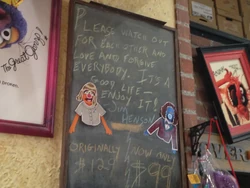 PLEASE WATCH OUT
FOR EACH OTHER AND
LOVE AND FORGIVE
EVERYBODY. IT'S A
GOOD LIFE—
ENJOY IT!
JIM
HENSON
ORIGINALLY
$129
NOW ONLY
$99